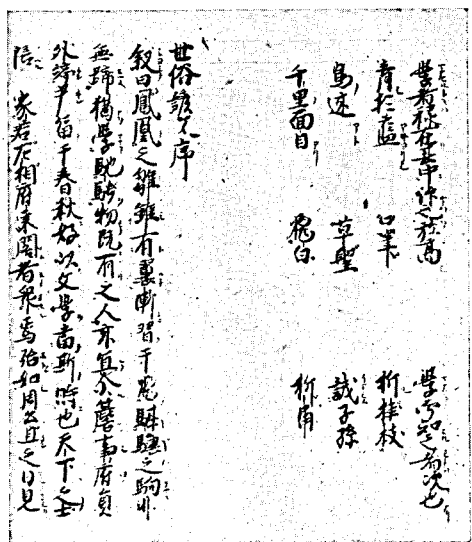 學者禄在其中 仰之弥高 學而知之者次也
青於藍 口筆 折桂枝
鳥迹 草聖 誡子孫
千里面目 飛白 折角
世俗諺文序
叙曰鳳凰之雛雖有翼漸習千尋騏驥之駒非
無蹄猶學馳騁物既有之人亦宜尒詹事府員
外藤尹富于春秋好以文學當斯時也天下之士
陪 家君左相府東閤者衆焉殆如周公旦之日見